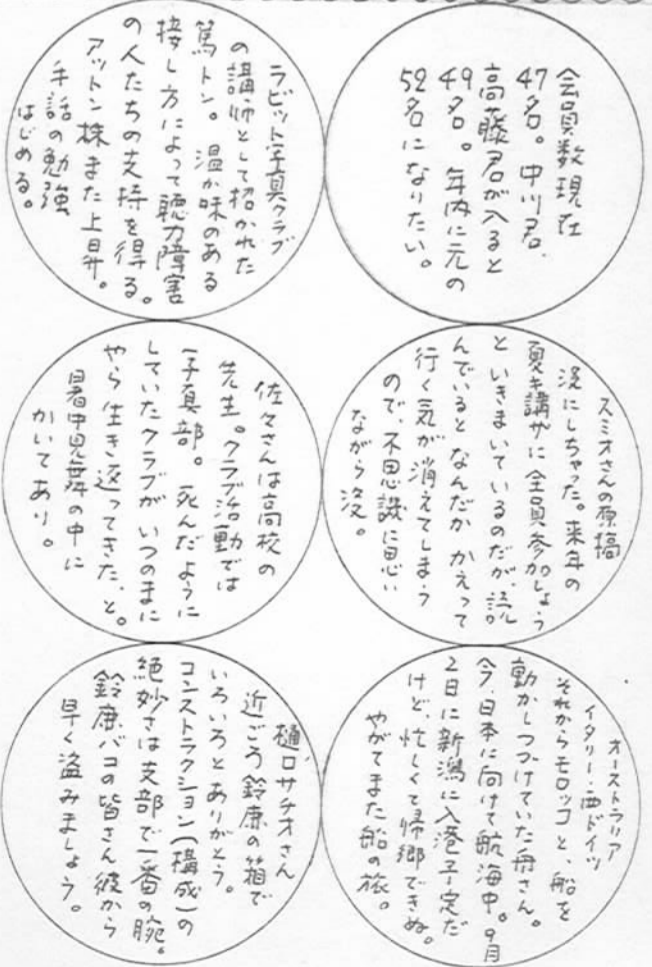 会員数現在
47名。中川君、
高藤君が入ると
49名。年内に元の
52名になりたい。
ラビット写真クラブ
の講師として招かれた
篤トン。温か味のある
接し方によって聴力障害
の人たちの支持を得る。
アットン株また上昇。
手話の勉強
はじめる。
スミオさんの原稿
没にしちゃった。来年の
夏キ講座に全員参加しよう
といきまいているのだが、読
んでいるとなんだかかえって
行く気が消えてしまう
ので、不思議に思い
ながら没。
佐々さんは高校の
先生。クラブ活動では
写真部。死んだように
していたクラブがいつのまに
やら生き返ってきた、と。
暑中見舞の中に
かいてあり。
オーストラリア
イタリー・西ドイツ
それからモロッコと、船を
動かしつづけていた舟さん。
今、日本に向けて航海中。9月
2日に新潟に入港予定だ
けど、忙しくて帰郷できぬ。
やがてまた船の旅。
樋口サチオさん
近ごろ鈴鹿の箱で
いろいろとありがとう。
コンストラクション(構成)の
絶妙さは支部で一番の腕。
鈴鹿バコの皆さん彼から
早く盗みましょう。